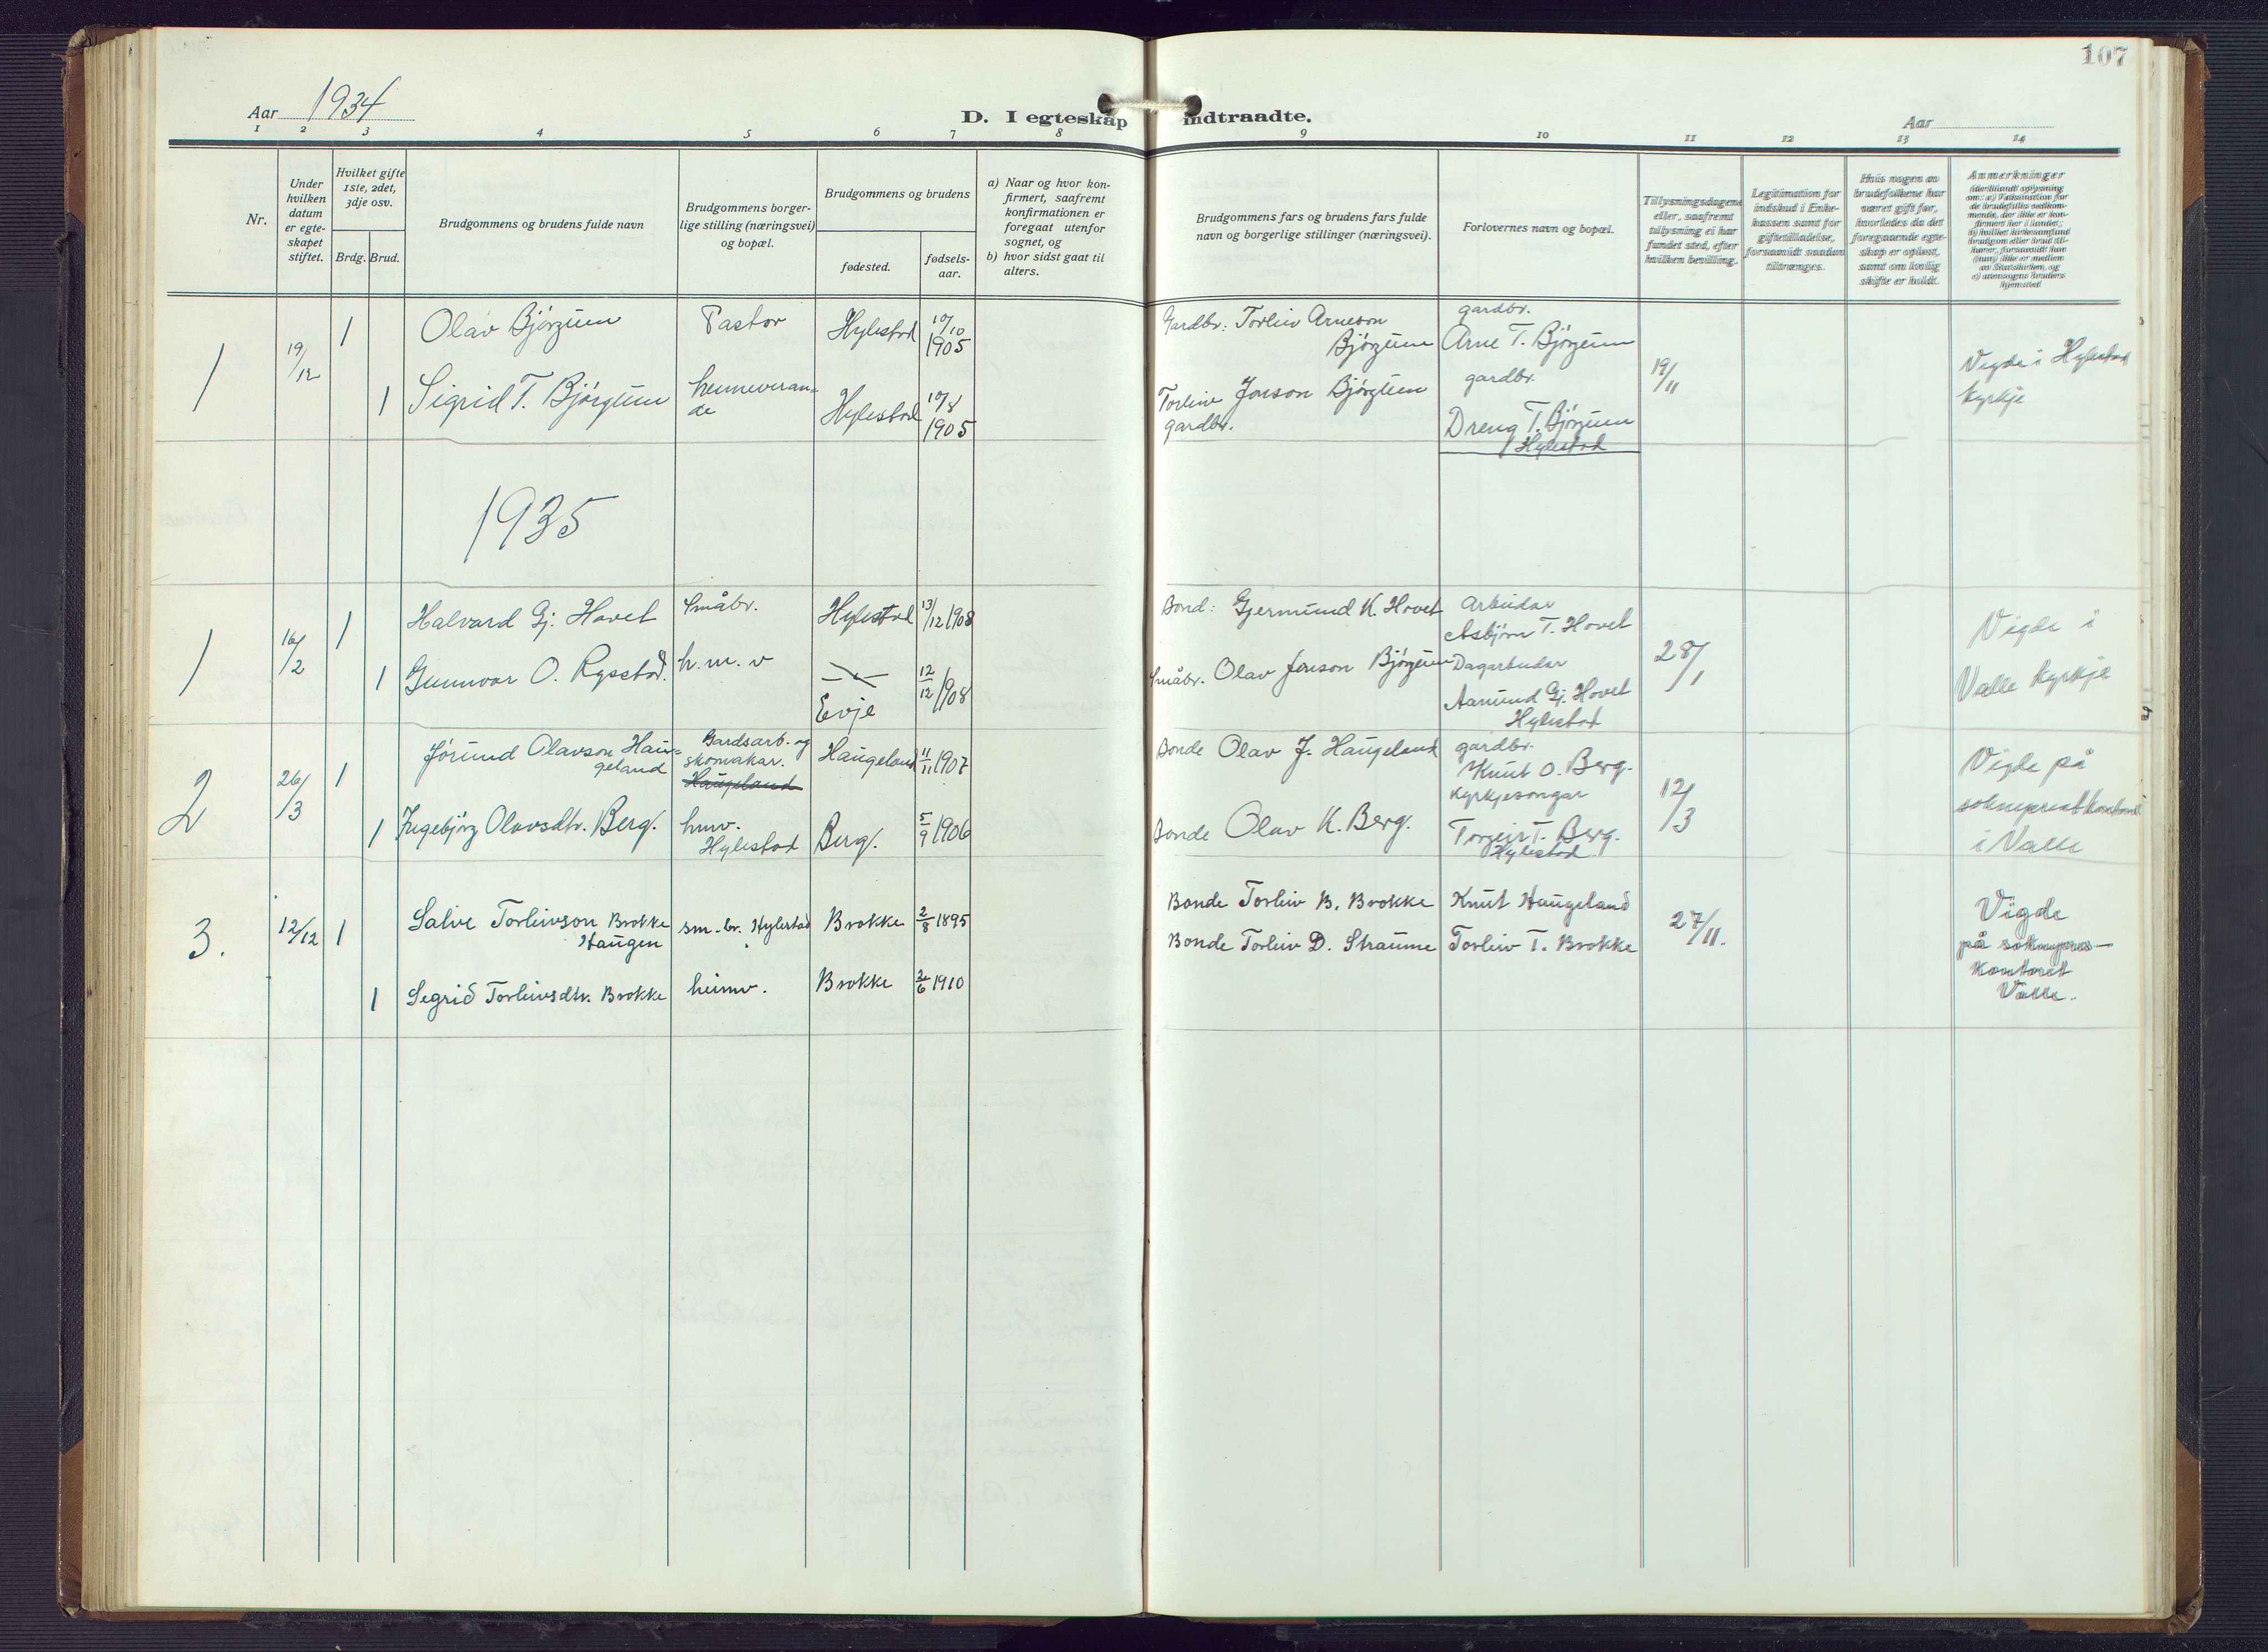 107
Aar 1934
D. I egteskap indtraadte.
Aar
1 2 3 4 5 6 7 8 9 10 11 12 13 14
Nr.
Under
hvilken
datum
er egte-
skapet
stiftet.
Hvilket gifte
1ste, 2det,
3dje osv.
Brdg. Brud.
Brudgommens og brudens fulde navn
Brudgommens borger-
lige stilling (næringsvei)
og bopæl.
Brudgommens og brudens
fødested.
fødsels-
aar.
a) Naar og hvor kon-
firmert, saafremt
konfirmationen er
foregaat utenfor
sognet, og
b) hvor sidst gaat til
alters.
Brudgommens fars og brudens fars fulde
navn og borgerlige stillinger (næringsvei).
Forlovernes navn og bopæl.
Tillysningsdagene
eller, saafremt
tillysning ei har
fundet sted, efter
hvilken bevilling.
Legitimation for
indskud i Enke-
kassen samt for
giftetilladelse,
forsaavidt saadan
tiltrænges.
Hvis nogen av
brudefolkene har
været gift før,
hvorledes da det
foregaaende egte-
skap er opløst,
samt om lovlig
skifte er holdt.
Anmerkninger
1 19/12 1 Olav Bjørgum Pastor Hylestad 10/10 1905
Gardbr: Torleiv Arneson
Bjørgum
gardbr.
Arne T. Bjørgum
19/11
Vigde i Hylestad
kyrkje
1 Sigrid T. Bjørgum heimeveran=
de
Hylestad 10/8 1905
Torleiv Jonson Bjørgum
gardbr.
gardbr.
Dreng T. Bjørgum
Hylestad
1935
1 16/2 1 Halvard Gj. Hovet Småbr. Hylestad 13/12 1908
Bond: Gjermund K. Hovet
Arbeidar
Asbjørn T. Hovet
28/1
Vigde i
Valle kyrkje
1 Gunnvor O. Rysstad. h. m. v — " —
Evje
12/12 1908
Småbr. Olav Jonson Bjørgum
Dagarbeidar
Aamund Gj. Hovet
Hylestad
2 26/3 1 Jørund Olavson Hau=
geland
Gardsarb. og
skomakar.
Haugeland
Haugeland 11/11 1907
Bonde Olav J. Haugeland
gardbr.
Knut O. Berg.
12/3
Vigde på
sokneprestkontoret
i Valle
1 Ingebjørg Olavsdtr. Berg. hmv.
Hylestad
Berg. 5/9 1906
Bonde Olav K. Berg.
kyrkjesongar
Torgeir T. Berg.
Hylestad
3. 12/12 1 Salve Torleivson Brokke
Haugen
sm.br. Hylestad Brokke 2/8 1895
Bonde Torleiv B. Brokke
Knut Haugeland
27/11.
Vigde
på soknepres—
kontoret
Valle.
1 Segrid Torleivsdtr. Brokke heimv. Brokke 2/6 1910
Bonde Torleiv D. Straume
Torleiv T. Brokke